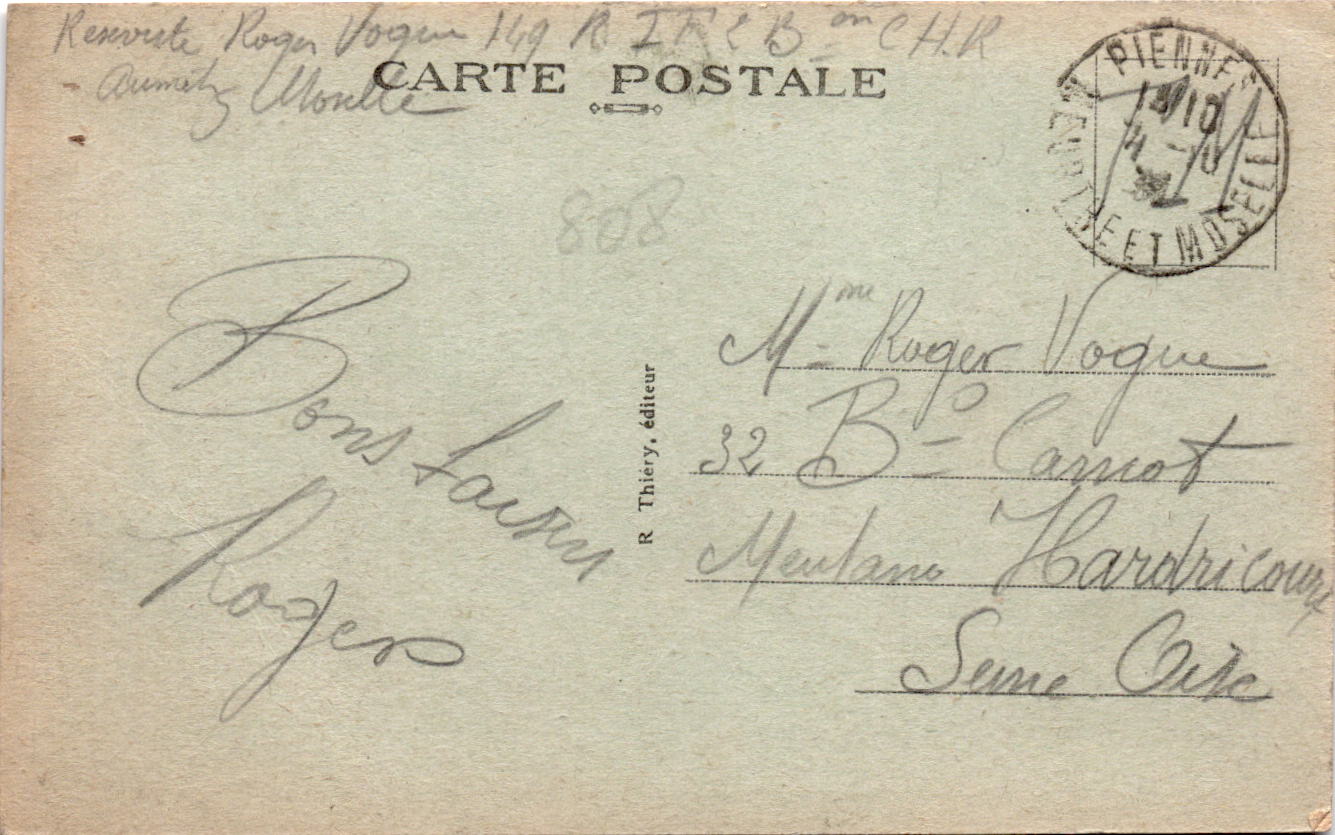 Reserviste Roger Vogue 149 R I F 2 Bon C H.R
Aumetz Moselle
CARTE POSTALE
PIENNES
MEURTHE ET MOSELLE
10
4 - 10
808
Bons baisers
Roger
R Thiéry, éditeur
Mme Roger Vogue
32 Bd Carnot
Meulan Hardricourt
Seine Oise